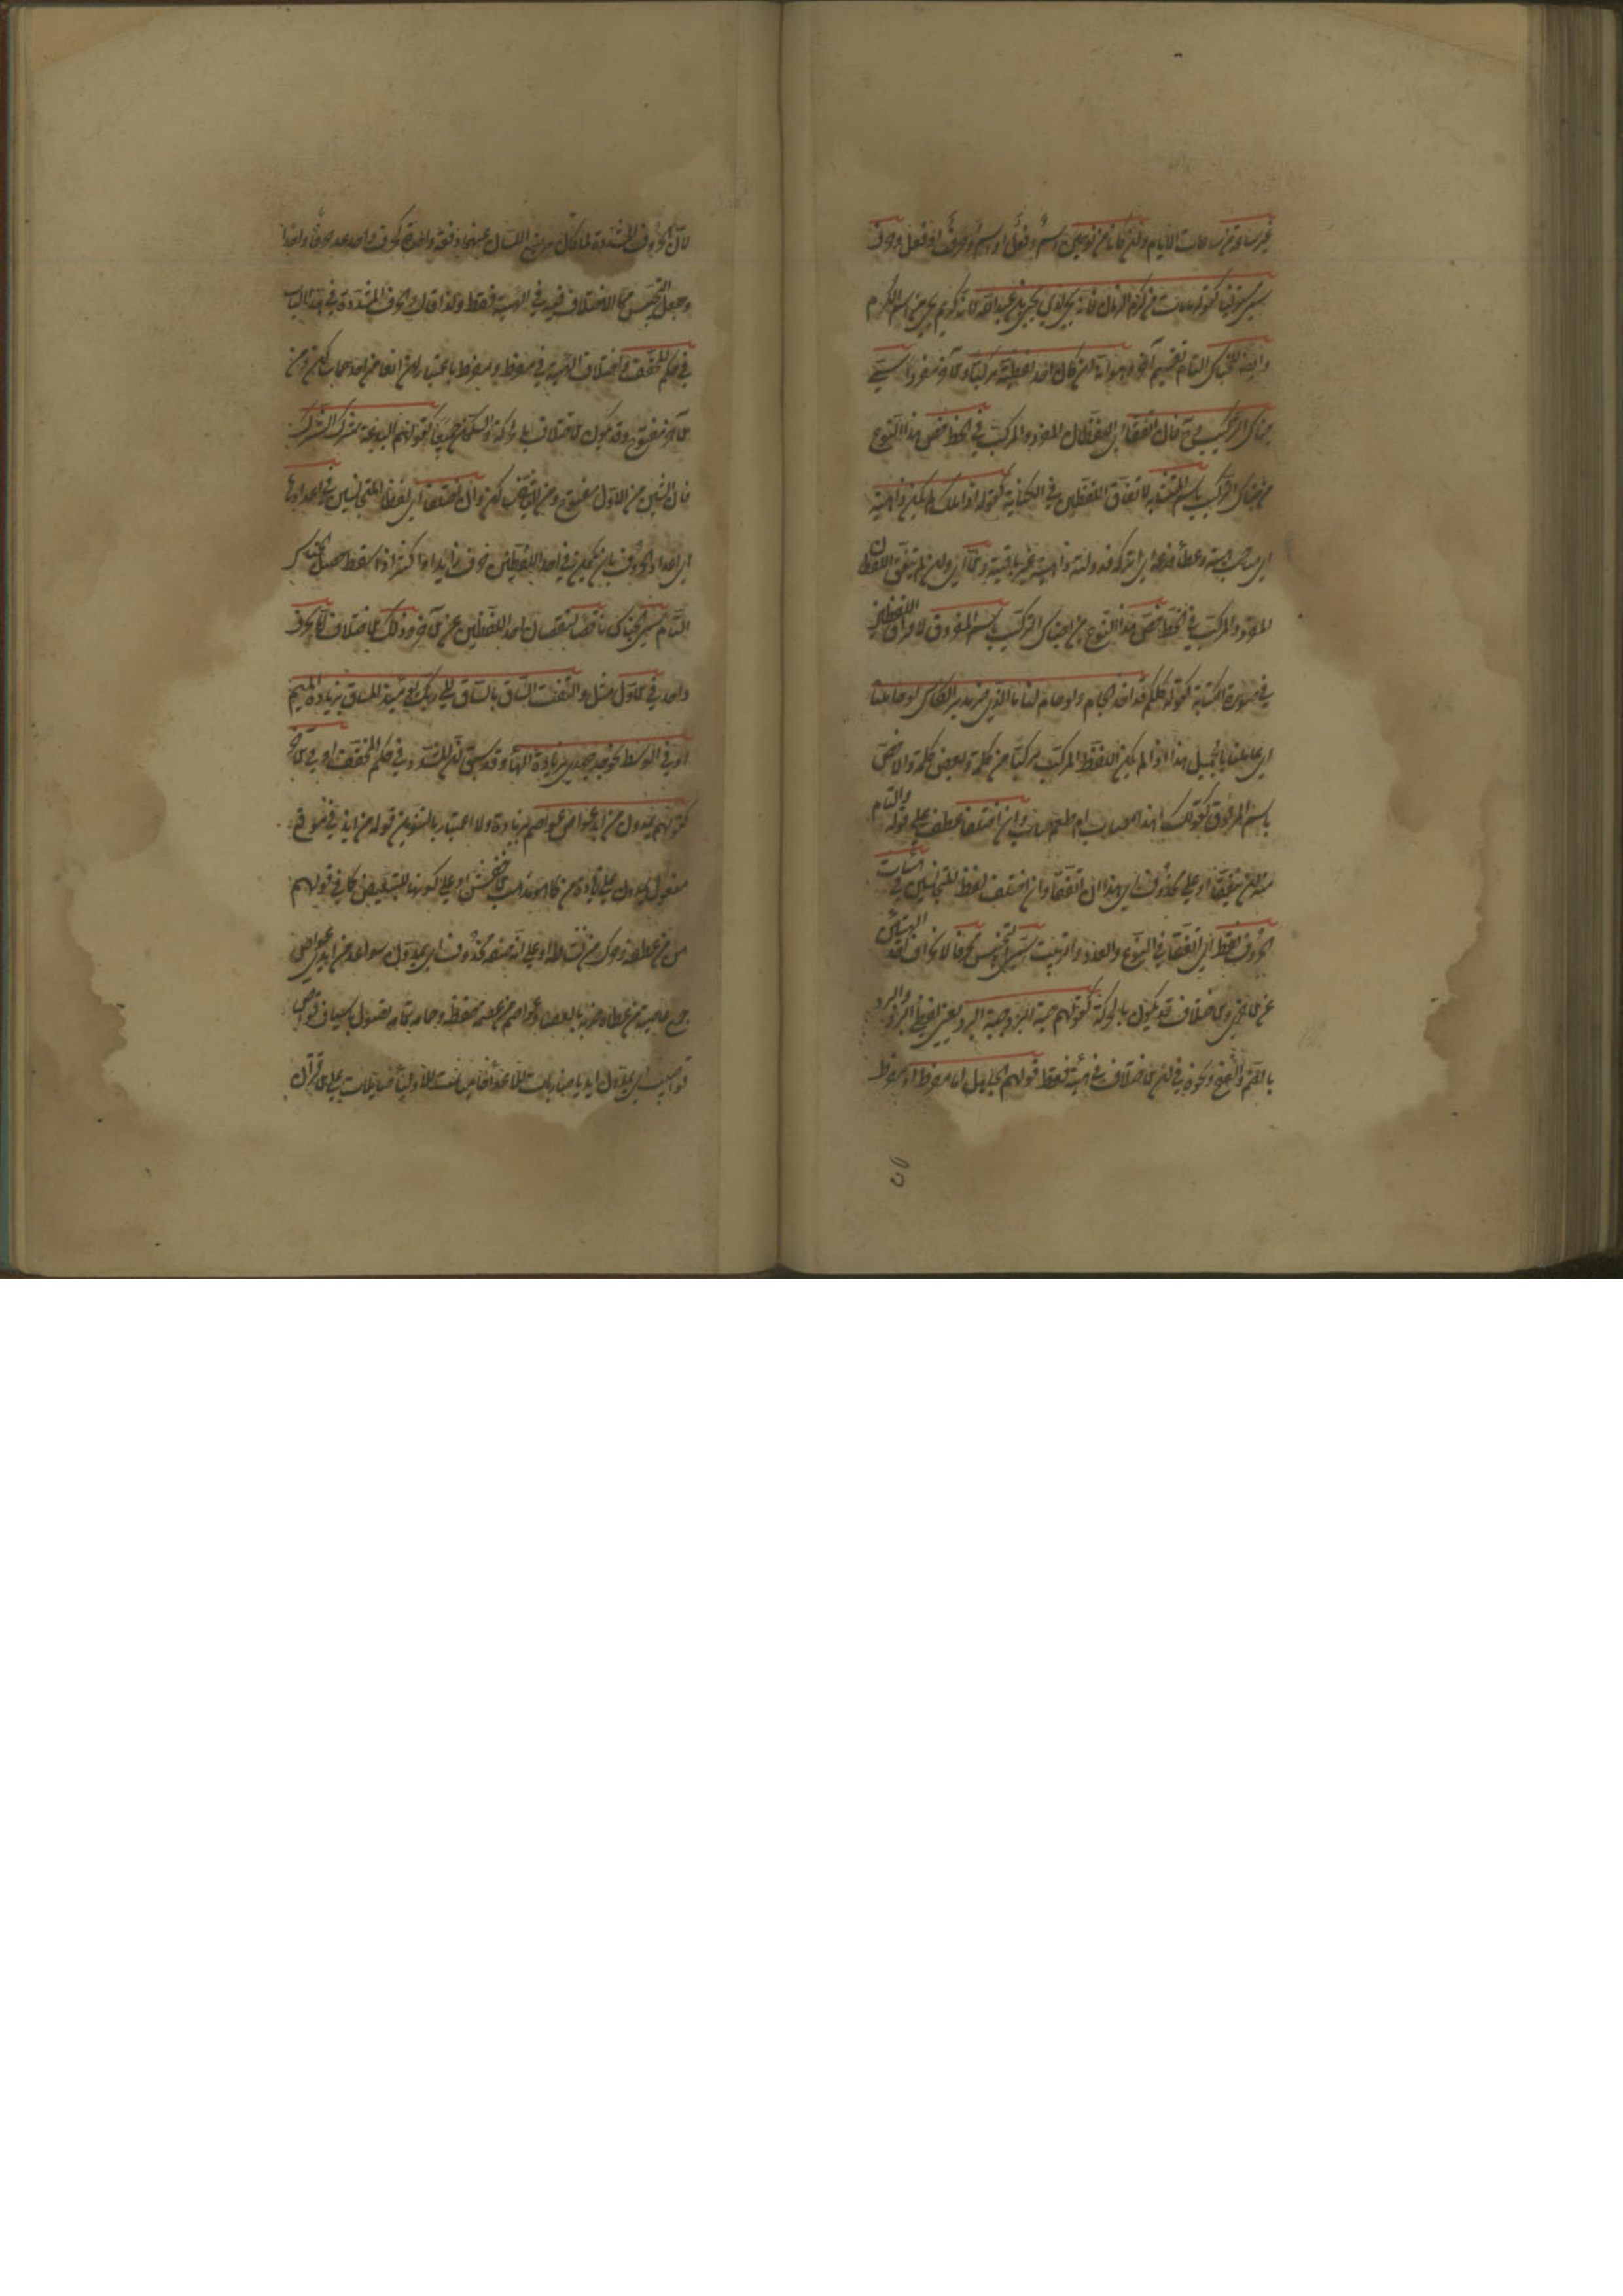 غير ساعة من ساعات الايام وان كانا من نوعين اسم وفعل او اسم وحرف او فعل وحرف
سمي مستوفى كقوله ما مات من كرم الزمان فانه يحيى لدى يحيى بن عبد الله لانه كريم يحيى اسم الكرم
وايضا للجناس التام تقسيم آخر وهو انه ان كان احد لفظيه مركبا والآخر مفردا سمي
جناس التركيب ثم فان اتفقا اي اللفظان المفرد والمركب في الخط خص هذا النوع
من جناس التركيب باسم المتشابه لاتفاق اللفظين في الكتابة كقوله اذا ملك لم يكن ذا هبة
اي صاحب هبة وعطاء فدعه اي اتركه فدولته ذاهبة غير باقية والا اي وان لم يتفق اللفظان
المفرد والمركب في الخط خص هذا النوع من جناس التركيب باسم المفروق لافتراق اللفظين
في صورة الكتابة كقوله كلكم قد اخذ الجام ولا جام لنا ما الذي ضر مدير الجام لو جاملنا
اي عاملنا بالجميل هذا اذا لم يكن اللفظ المركب مركبا من كلمة وبعض كلمة والا خص
باسم المرفو كقولك اهذا مصاب ام طعم صاب وان اختلفا عطف على قوله والتام
منه ان يتفقا او على محذوف اي هذا ان اتفقا وان اختلف لفظا المتجانسين في هيئات
الحروف فقط اي اتفقا في النوع والعدد والترتيب سمي التجنيس محرفا لانحراف احدى الهيئتين
عن الاخرى والاختلاف قد يكون بالحركة كقولهم جبة البرد جنة البرد يعني لفظ البرد والبرد
بالضم والفتح ونحوه في ان الاختلاف في الهيئة فقط قولهم الجاهل اما مفرط او مفرط
لان الحروف المشددة لما كان يرتفع اللسان عنهما دفعة واحدة كحرف واحد عد حرفا واحدا
وجعل التجنيس مما الاختلاف فيه في الهيئة فقط ولذا قال والحرف المشدد في هذا الباب
في حكم المخفف واختلاف الهيئة في مفرط ومفرط باعتبار ان الفاء من احدهما ساكن ومن
الآخر مفتوح وقد يكون الاختلاف بالحركة والسكون جميعا كقولهم البدعة شرك الشرك
فان الشين من الاول مفتوح ومن الثاني مكسور وان اختلفا اي لفظا المتجانسين في اعدادها
اي اعداد الحروف بان يكون في احد اللفظين حرف زائد او اكثر اذا سقط حصل الجناس
التام سمي الجناس ناقصا لنقصان احد اللفظين عن الآخر وذلك الاختلاف اما بحرف
واحد في الاول مثل والتفت الساق بالساق الى ربك يومئذ المساق بزيادة الميم
او في الوسط نحو جدي جهدي بزيادة الهاء وقد سبق ان المشدد في حكم المخفف او في الآخر
كقولهم يمدون من ايد عواص عواصم بزيادة ولا اعتبار بالتنوين قوله من ايد في موضع
مفعول يمدون على زيادة من كما هو مذهب الاخفش او على كونها للتبعيض كما في قولهم
من عطفه وحرك من نشاطه او على انه صفة محذوف اي يمدون سواعد من ايد عواص
جمع عاصية من عصاه ضربه بالعصا وعواصم من عصمه حفظه وحماه تمامه تصول باسياف قواض
قواضب اي يمدون ايديا ضاربات للاعداء حاميات للاولياء صائلات على الاقران